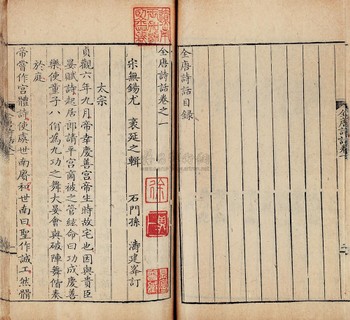 全唐詩話卷
全唐詩話目錄
全唐詩話卷之一
宋無錫尤 袤延之輯 石門孫 濤建訂
太宗
貞觀六年九月帝幸慶善宮帝生時故宅也因與貴臣
宴賦詩起居郎請平宮商被之管絃命曰功成慶善
樂使童子八佾為九功之舞大宴會與破陣舞偕奏
於庭
帝嘗作宮體詩使虞世南賡和世南曰聖作誠工然體